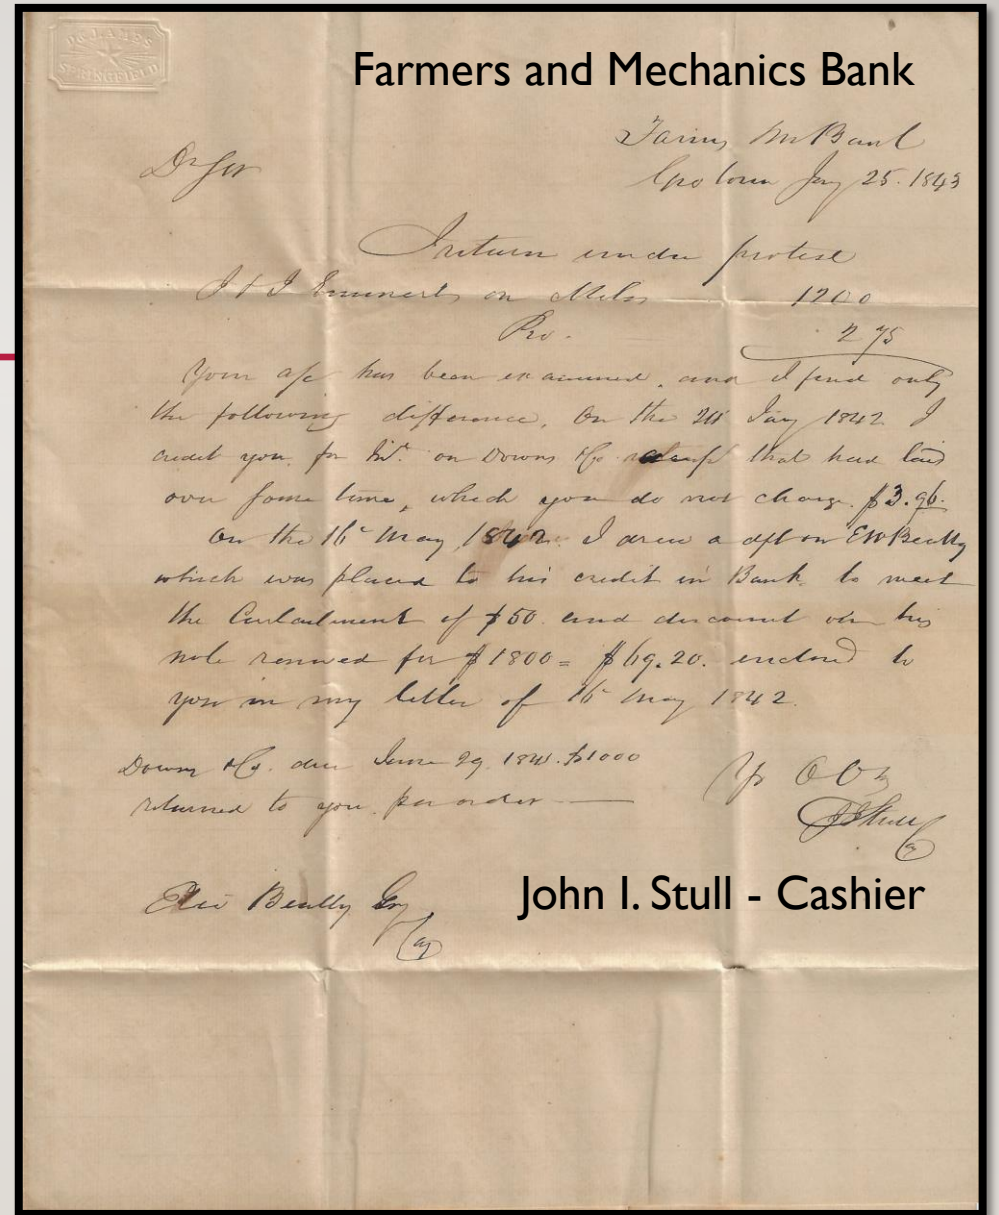 D. & J. AMES
SPRINGFIELD
Farmers and Mechanics Bank
Farms Mc Bank
Geo town Jny 25. 1843
Dr Sir
I return under protest
J & J Emmerts on Miles 1200
Pro. 2 75
Your a/c has been examined, and I find only
the following difference, On the 24 Jany 1842 I
credit you for Int on Downs & Co that had laid
over some time, which you do not charge $3.96.
On the 16th May 1842. I drew a dft on EW Beatty
which was placed to his credit in Bank to meet
the Curtailment of $50. and discount on his
note renewed for $1800 = $69.20. enclosed to
you in my letter of 16th May 1842.
Downs & Co. due June 29. $1000
returned to you per order
Yr O Sv
JI Stull
Ca
John I. Stull - Cashier
Beatty Esq
Ca